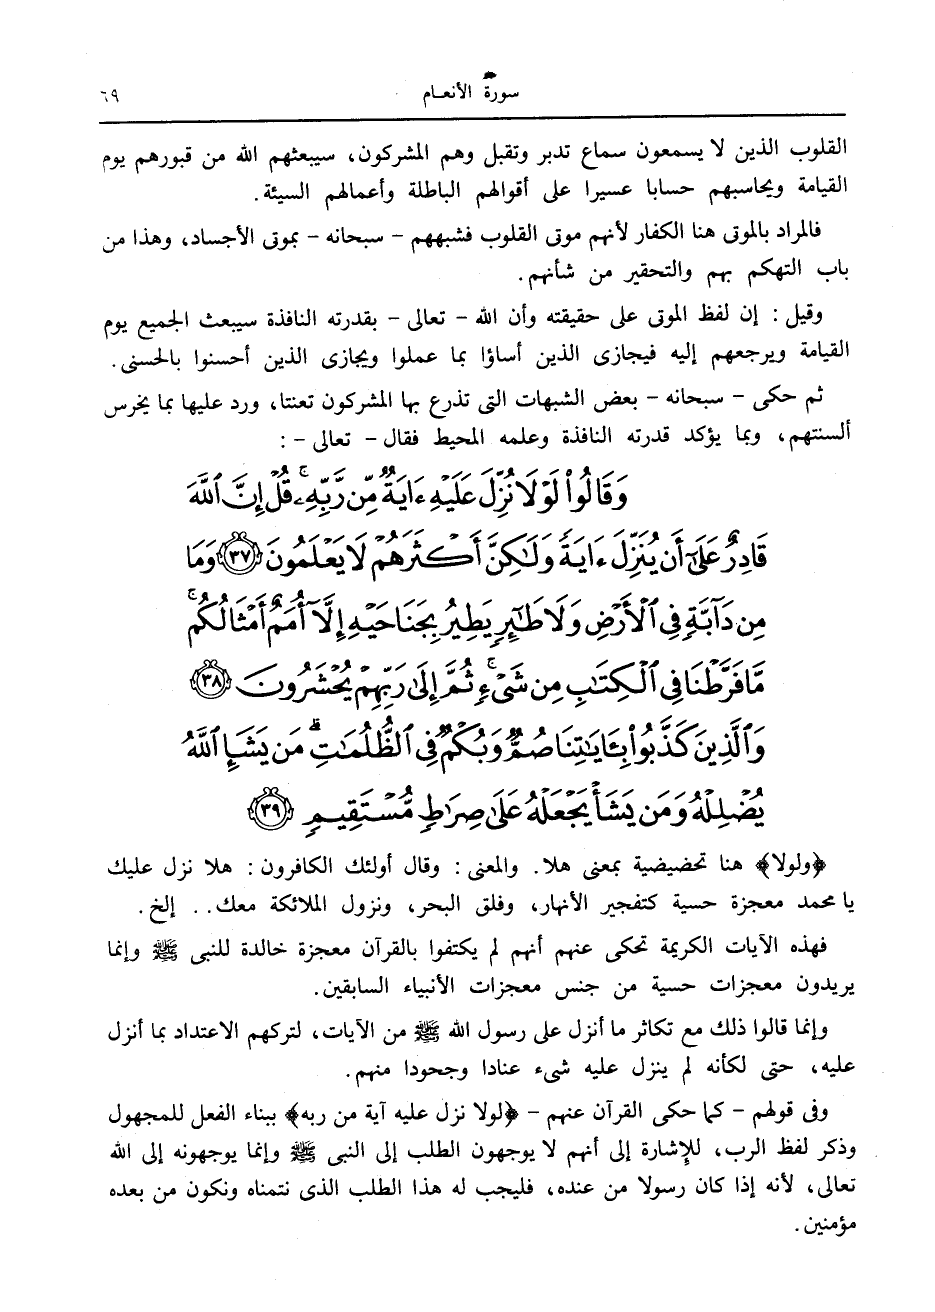 سورة الأنعام
٦٩
القلوب الذين لا يسمعون سماع تدبر وتقبل وهم المشركون، سيبعثهم الله من قبورهم يوم
القيامة ويحاسبهم حسابا عسيرا على أقوالهم الباطلة وأعمالهم السيئة .
فالمراد بالموتى هنا الكفار لأنهم موتى القلوب فشبههم - سبحانه - بموتى الأجساد، وهذا من
باب التهكم بهم والتحقير من شأنهم .
وقيل : إن لفظ الموتى على حقيقته وأن الله - تعالى - بقدرته النافذة سيبعث الجميع يوم
القيامة ويرجعهم إليه فيجازى الذين أساؤا بما عملوا ويجازى الذين أحسنوا بالحسنى .
ثم حكى - سبحانه - بعض الشبهات التى تذرع بها المشركون تعنتا، ورد عليها بما يخرس
ألسنتهم، وبما يؤكد قدرته النافذة وعلمه المحيط فقال - تعالى - :
وَقَالُوا۟ لَوْلَا نُزِّلَ عَلَيْهِ ءَايَةٌ مِّن رَّبِّهِۦ ۚ قُلْ إِنَّ ٱللَّهَ
قَادِرٌ عَلَىٰٓ أَن يُنَزِّلَ ءَايَةً وَلَـٰكِنَّ أَكْثَرَهُمْ لَا يَعْلَمُونَ ﴿٣٧﴾ وَمَا
مِن دَآبَّةٍ فِى ٱلْأَرْضِ وَلَا طَـٰٓئِرٍ يَطِيرُ بِجَنَاحَيْهِ إِلَّآ أُمَمٌ أَمْثَالُكُم ۚ
مَّا فَرَّطْنَا فِى ٱلْكِتَـٰبِ مِن شَىْءٍ ۚ ثُمَّ إِلَىٰ رَبِّهِمْ يُحْشَرُونَ ﴿٣٨﴾
وَٱلَّذِينَ كَذَّبُوا۟ بِـَٔايَـٰتِنَا صُمٌّ وَبُكْمٌ فِى ٱلظُّلُمَـٰتِ ۗ مَن يَشَإِ ٱللَّهُ
يُضْلِلْهُ وَمَن يَشَأْ يَجْعَلْهُ عَلَىٰ صِرَٰطٍ مُّسْتَقِيمٍ ﴿٣٩﴾
﴿ولولا﴾ هنا تحضيضية بمعنى هلا. والمعنى : وقال أولئك الكافرون : هلا نزل عليك
يا محمد معجزة حسية كتفجير الأنهار، وفلق البحر، ونزول الملائكة معك . . إلخ .
فهذه الآيات الكريمة تحكى عنهم أنهم لم يكتفوا بالقرآن معجزة خالدة للنبى ﷺ وإنما
يريدون معجزات حسية من جنس معجزات الأنبياء السابقين .
وإنما قالوا ذلك مع تكاثر ما أنزل على رسول الله ﷺ من الآيات، لتركهم الاعتداد بما أنزل
عليه، حتى لكأنه لم ينزل عليه شىء عنادا وجحودا منهم .
وفى قولهم - كما حكى القرآن عنهم - ﴿لولا نزل عليه آية من ربه﴾ ببناء الفعل للمجهول
وذكر لفظ الرب، للإشارة إلى أنهم لا يوجهون الطلب إلى النبى ﷺ وإنما يوجهونه إلى الله
تعالى، لأنه إذا كان رسولا من عنده، فليجب له هذا الطلب الذى نتمناه ونكون من بعده
مؤمنين .